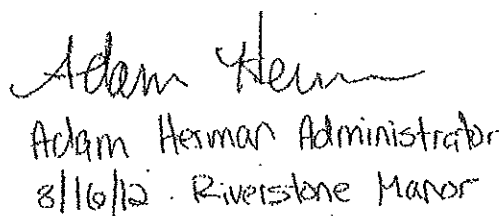 Adam Herman
Adam Herman Administrator
8/16/12. Riverstone Manor